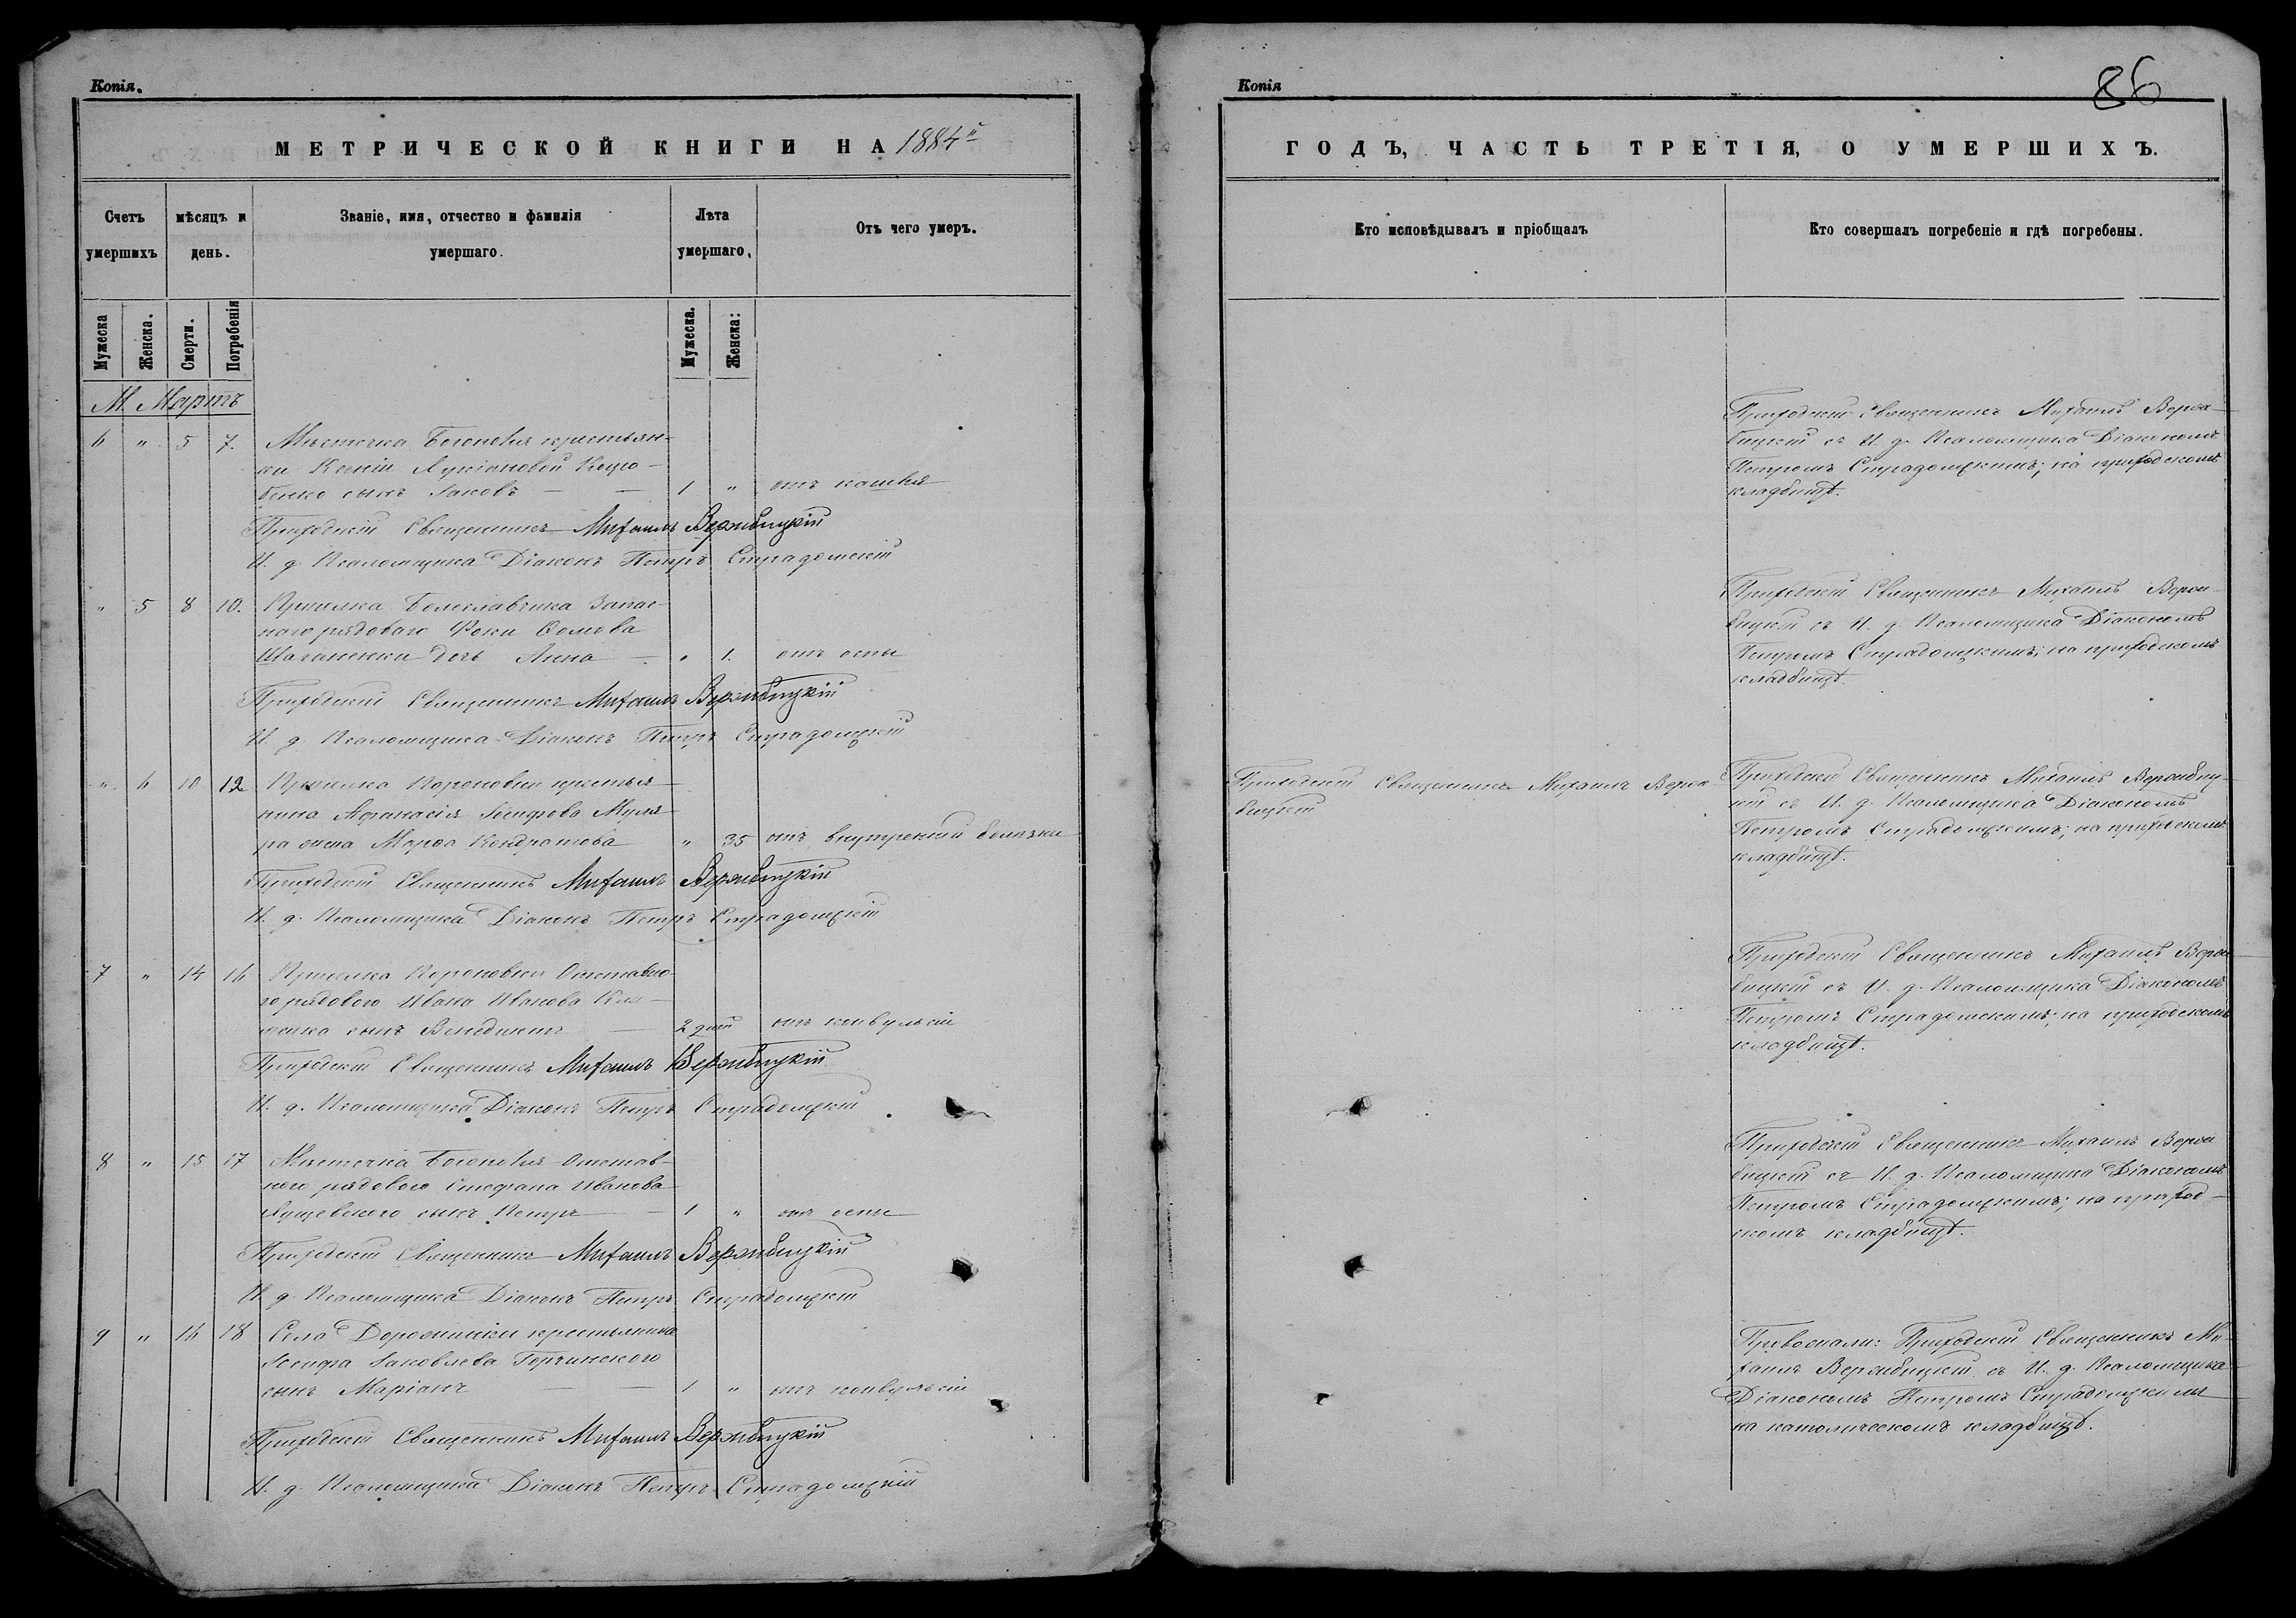 Копія.
МЕТРИЧЕСКОЙ КНИГИ НА 1884й
Счетъ умершихъ
мѣсяцъ и день.
Званіе, имя, отчество и фамилія умершаго.
Лѣта умершаго.
Отъ чего умеръ.
Мужеска
Женска.
Смерти.
Погребенія
Мужеска.
Женска:
М. Мартъ
6 " 5 7. Мѣстечка Богополя крестьян-
ки Ксеніи Лукіановой
сынъ Іаковъ — — 1 " отъ кашля
Приходскій Священникъ Михаилъ Вержбицкій
И. д. Псаломщика Діаконъ Петръ Страдомскій
" 5 8 10. Приселка Болеславчика Запас-
наго рядоваго Фоки Ѳомова
дочь Анна — " 1. отъ оспы
Приходскій Священникъ Михаилъ Вержбицкій
И. д. Псаломщика Діаконъ Петръ Страдомскій
" 6 10 12 Приселка Кореновки крестья-
нина Аѳанасія Іосифова Муля-
ра жена Марѳа Кондратова " 35 отъ внутренней болѣзни
Приходскій Священникъ Михаилъ Вержбицкій
И. д. Псаломщика Діаконъ Петръ Страдомскій
7 " 14 16 Приселка Кореновки Отставно-
го рядового Ивана Иванова
сынъ Венедиктъ — 2 дней отъ конвульсій
Приходскій Священникъ Михаилъ Вержбицкій
И. д. Псаломщика Діаконъ Петръ Страдомскій
8 " 15 17 Мѣстечка Богополя Отстав-
ного рядового Стефана Иванова
сынъ Петръ — 1 " отъ оспы
Приходскій Священникъ Михаилъ Вержбицкій
И. д. Псаломщика Діаконъ Петръ Страдомскій
9 " 16 18 Села Дорожинки крестьянина
Іосифа Іаковлева Горчинского
сынъ Маріанъ — — 1 " отъ конвульсій
Приходскій Священникъ Михаилъ Вержбицкій
И. д. Псаломщика Діаконъ Петръ Страдомскій
Копія
86
ГОДЪ, ЧАСТЬ ТРЕТІЯ, О УМЕРШИХЪ.
Кто исповѣдывалъ и пріобщалъ
Кто совершалъ погребеніе и гдѣ погребены.
Приходскій Священникъ Михаилъ Верж-
бицкій съ И. д. Псаломщика Діакономъ
Петромъ Страдомскимъ; на приходскомъ
кладбищѣ.
Приходскій Священникъ Михаилъ Верж-
бицкій съ И. д. Псаломщика Діакономъ
Петромъ Страдомскимъ; на приходскомъ
кладбищѣ.
Приходскій Священникъ Михаилъ Верж-
бицкій
Приходскій Священникъ Михаилъ Вержбиц-
кій съ И. д. Псаломщика Діакономъ
Петромъ Страдомскимъ; на приходскомъ
кладбищѣ.
Приходскій Священникъ Михаилъ Верж-
бицкій съ И. д. Псаломщика Діакономъ
Петромъ Страдомскимъ; на приходскомъ
кладбищѣ.
Приходскій Священникъ Михаилъ Верж-
бицкій съ И. д. Псаломщика Діакономъ
Петромъ Страдомскимъ; на приход-
скомъ кладбищѣ.
Провожали: Приходскій Священникъ Ми-
хаилъ Вержбицкій съ И. д. Псаломщика
Діакономъ Петромъ Страдомскимъ
на католическомъ кладбищѣ.